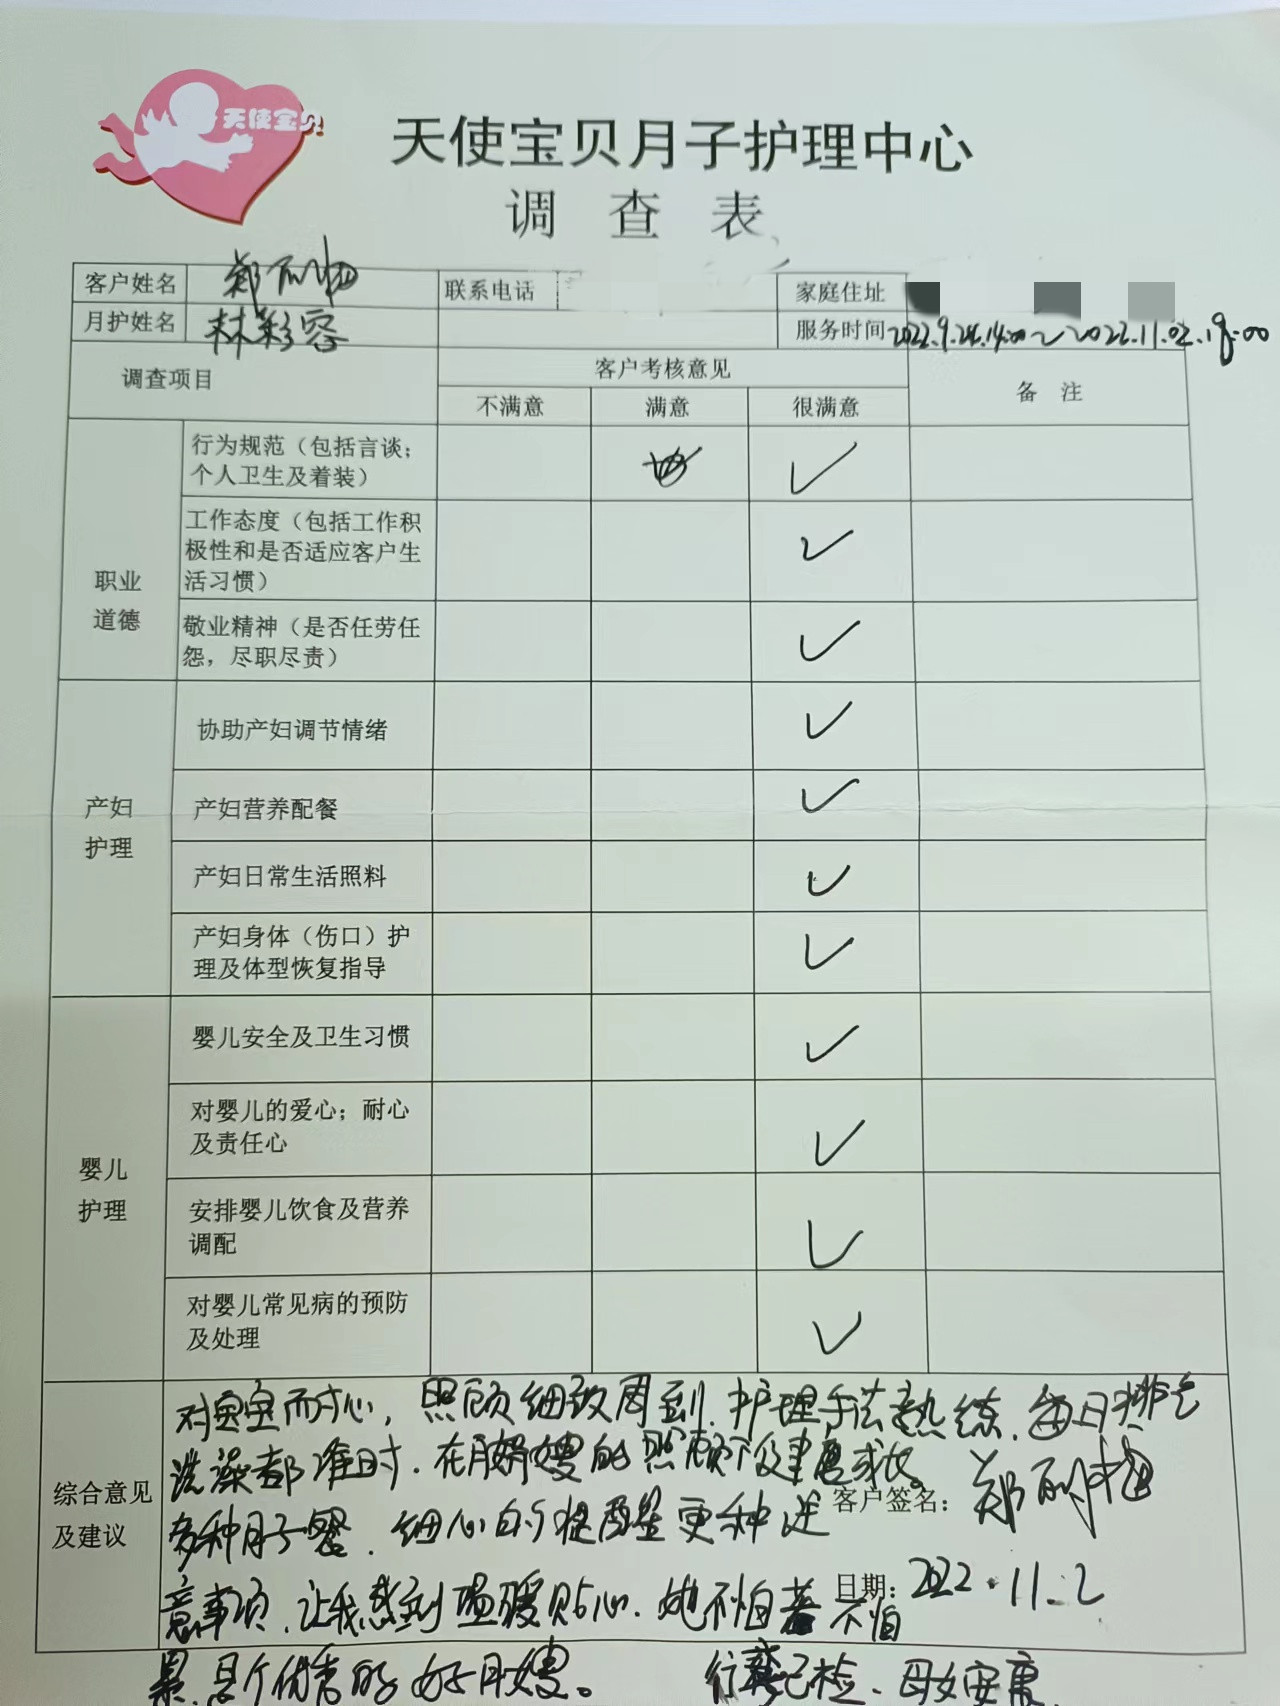 天使宝贝
天使宝贝月子护理中心
调 查 表
客户姓名 郑丽 联系电话 家庭住址
月护姓名 林彩容 服务时间 2022.9.24.14:00~2022.11.02.18:00
调查项目 客户考核意见 备 注
不满意 满意 很满意
职业
道德
行为规范（包括言谈；
个人卫生及着装）
工作态度（包括工作积
极性和是否适应客户生
活习惯）
敬业精神（是否任劳任
怨，尽职尽责）
产妇
护理
协助产妇调节情绪
产妇营养配餐
产妇日常生活照料
产妇身体（伤口）护
理及体型恢复指导
婴儿
护理
婴儿安全及卫生习惯
对婴儿的爱心；耐心
及责任心
安排婴儿饮食及营养
调配
对婴儿常见病的预防
及处理
综合意见
及建议
对宝宝耐心，照顾细致周到，护理手法熟练，每日排气
洗澡都准时，在月嫂的照顾下健康成长。
多种月子餐，细心的提醒
客户签名：郑丽
意事项，让我感到温暖贴心，她不怕 不怕
日期：2022.11.2
累，是个优秀的好月嫂。 母女安康